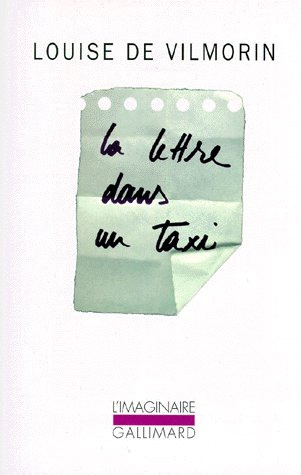 LOUISE DE VILMORIN
la lettre
dans
un taxi
L'IMAGINAIRE
GALLIMARD